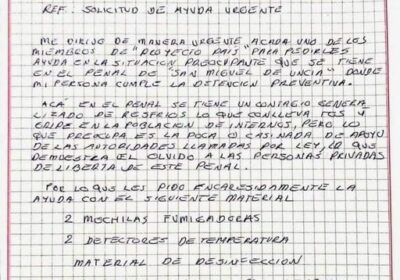 REF. SOLICITUD DE AYUDA URGENTE
ME DIRIJO DE MANERA URGENTE ACADA UNO DE LOS
MIEMBROS DE "PROYECTO PAIS" PARA PEDIRLES
AYUDA EN LA SITUACION PREOCUPANTE QUE SE TIENE
EN EL PENAL DE "SAN MIGUEL DE UNCIA" DONDE
MI PERSONA CUMPLE LA DETENCION PREVENTIVA.
ACA EN EL PENAL SE TIENE UN CONTAGIO GENERA
LIZADO DE RESFRIOS LO QUE CONLLEVA TOS Y
GRIPE EN LA POBLACION DE INTERNOS, PERO LO
QUE PREOCUPA ES LA POCA O CASI NADA DE APOYO
DE LAS AUTORIDADES LLAMADAS POR LEY, LO QUE
DEMUESTRA EL OLVIDO A LAS PERSONAS PRIVADAS
DE LIBERTA DE ESTE PENAL.
POR LO QUE LES PIDO ENCARESIDAMENTE LA
AYUDA CON EL SIGUIENTE MATERIAL
2 MOCHILAS FUMIGADORAS
2 DETECTORES DE TEMPERATURA
MATERIAL DE DESINFECCION